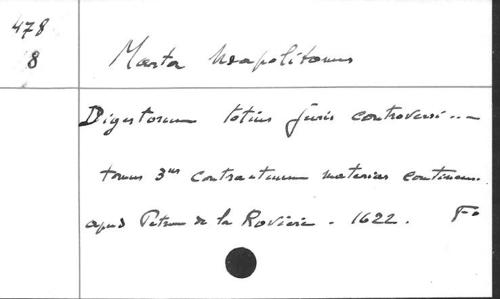 478
8
Marta Neapolitanus
Digestorum totius juris controversi...
tomus 3us contractuum materias continens.
apud Petrum de la Rovière. 1622. Fo